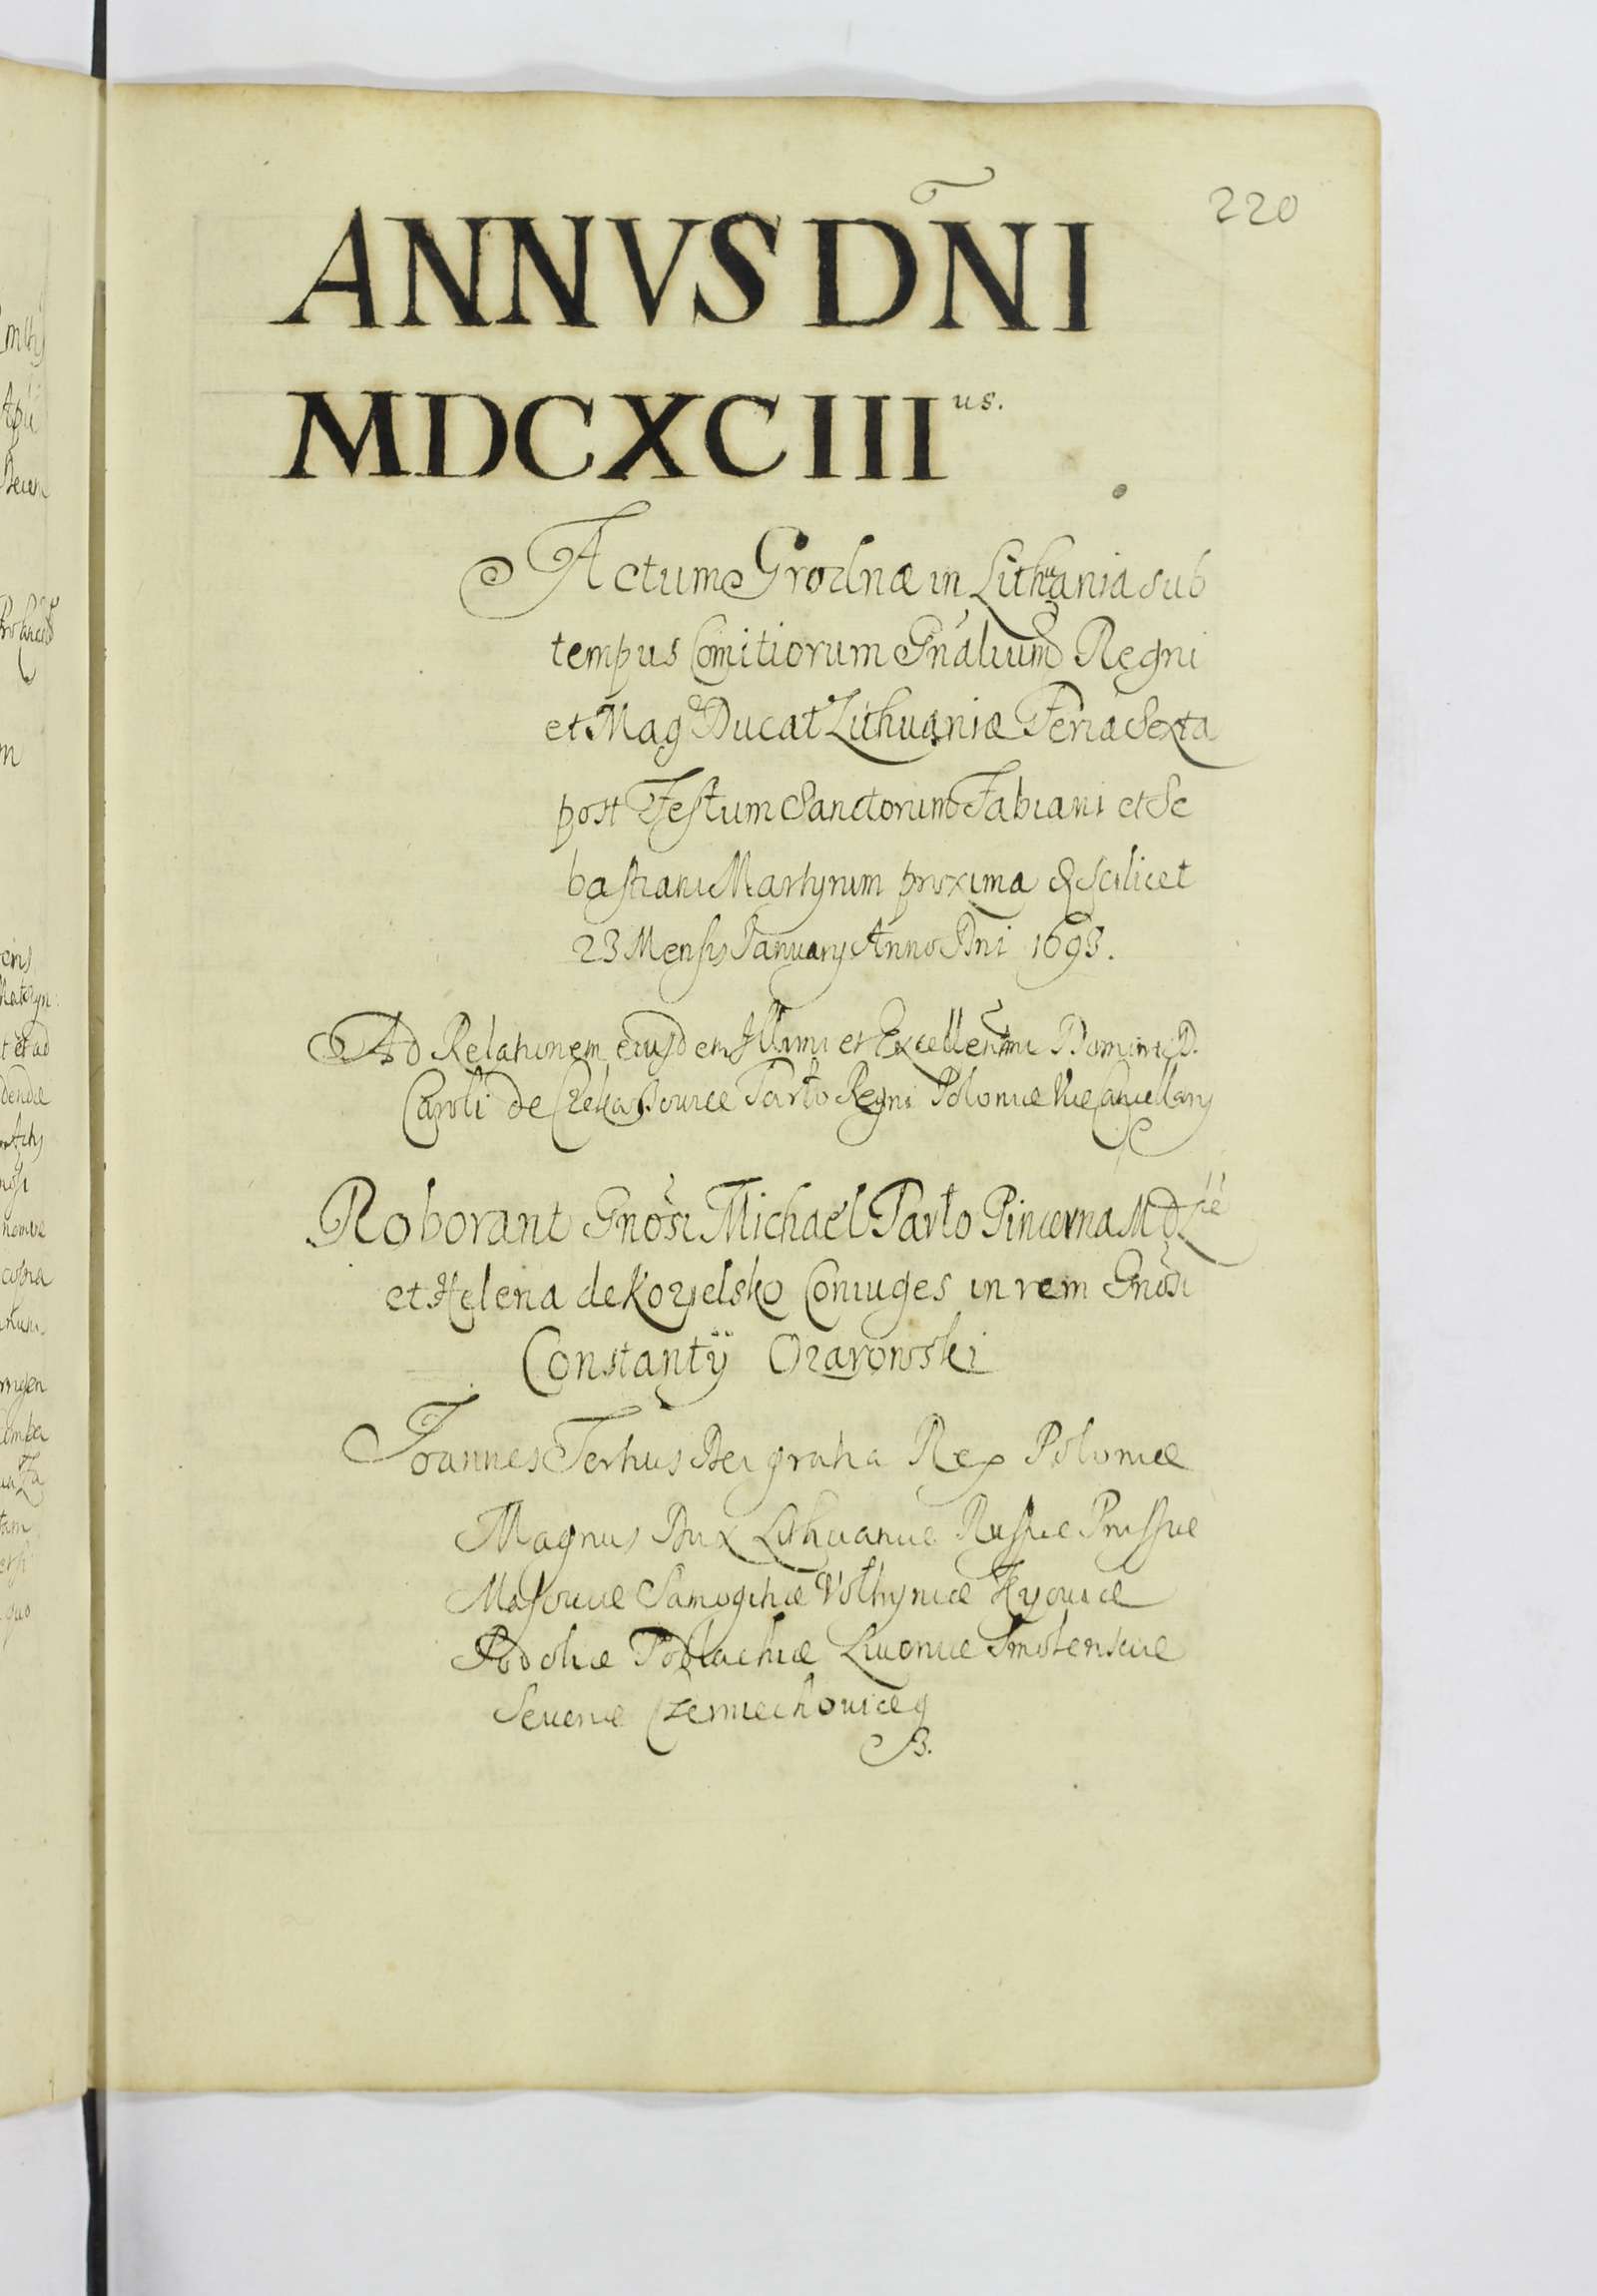 220
ANNVS DÑI
MDCXCIII us.
Actum Grodnæ in Lithuania sub
tempus Comitiorum Gn̄alium Regni
et Mag Ducat Lithuaniæ Feria Sexta
post Festum Sanctorum Fabiani et Se
bastiani Martyrum proxima & scilicet
23 Mensis Ianuarij Anno Dni 1693.
Ad Relationem eiusdem Illrmi et Excellentmi Domini D.
Caroli de Czekarzouice Tarło Regni Poloniæ Vice Cancellarij
Roborant Gnōsi Michaël Tarło Pincerna M D L
et Helena de Kozielsko Coniuges in rem Gnōsi
Constantÿ Ozarowski
Ioannes Tertius Dei gratia Rex Poloniæ
Magnus Dux Lithuaniæ Russiæ Prussiæ
Masouiæ Samogitiæ Volhyniæ Kyouiæ
Podoliæ Podlachiæ Liuoniæ Smolensciæ
Seueriæ Czerniechouiæq